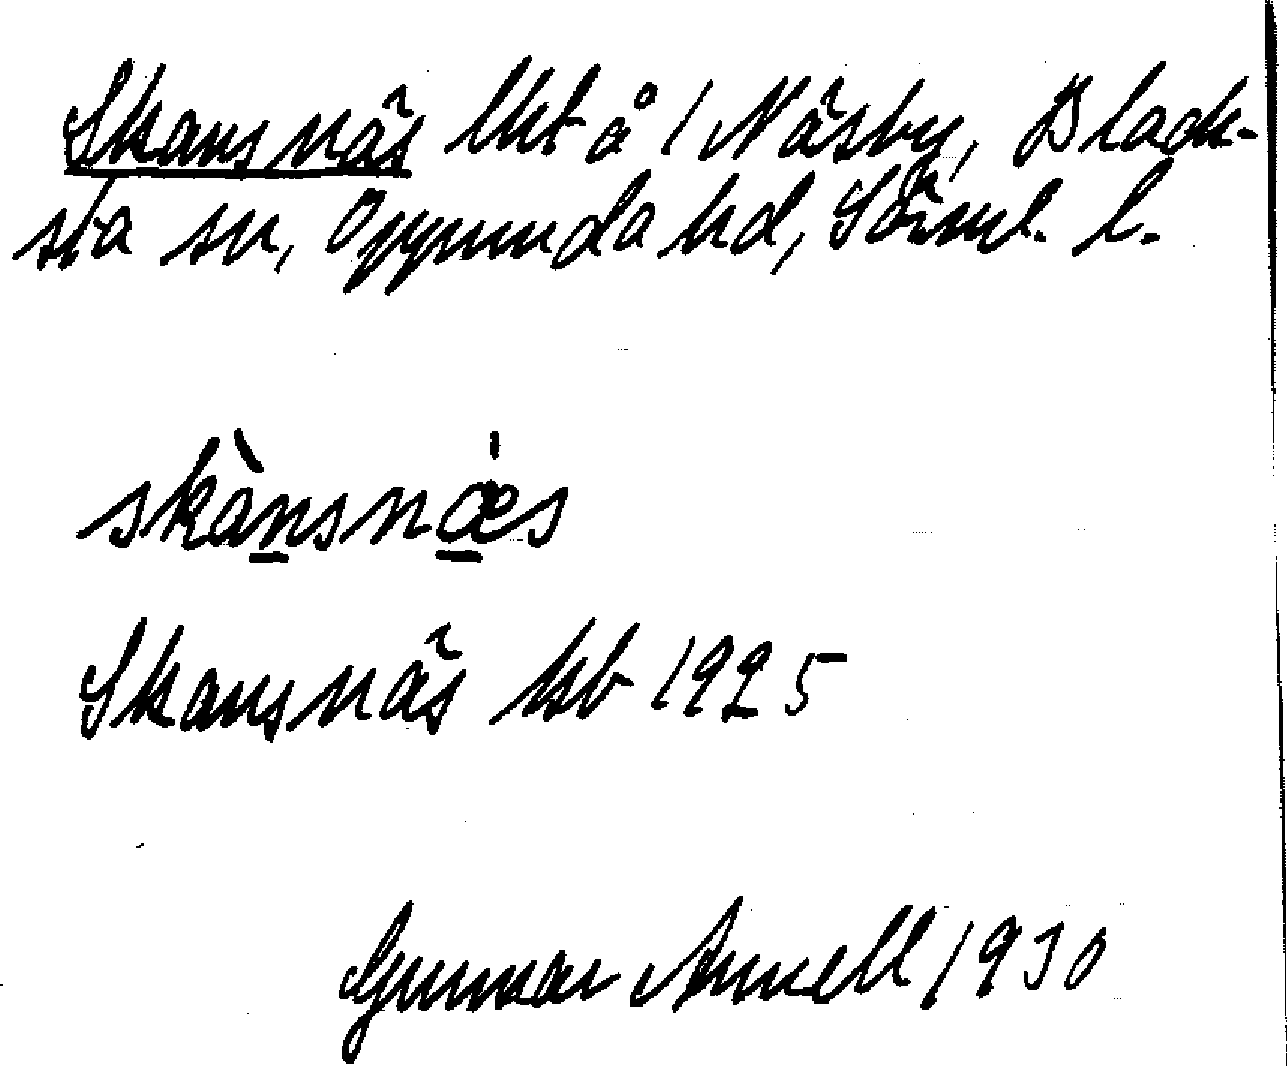 Skansnäs lht å 1 Näsby, Black-
sta sn, Oppunda hd, Sörml. l.
skànsnæ̍s
Skansnäs kb 1925
Gunnar Annell 1930